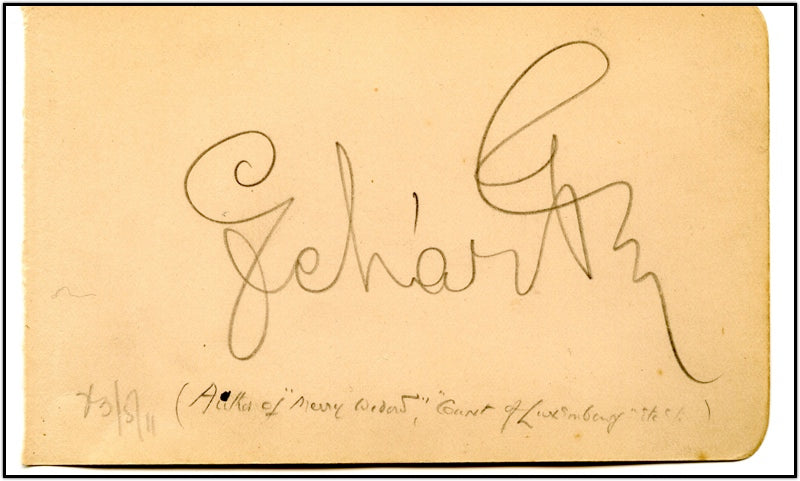 Lehár
(Author of "Merry Widow", "Count of Luxembourg" etc.)